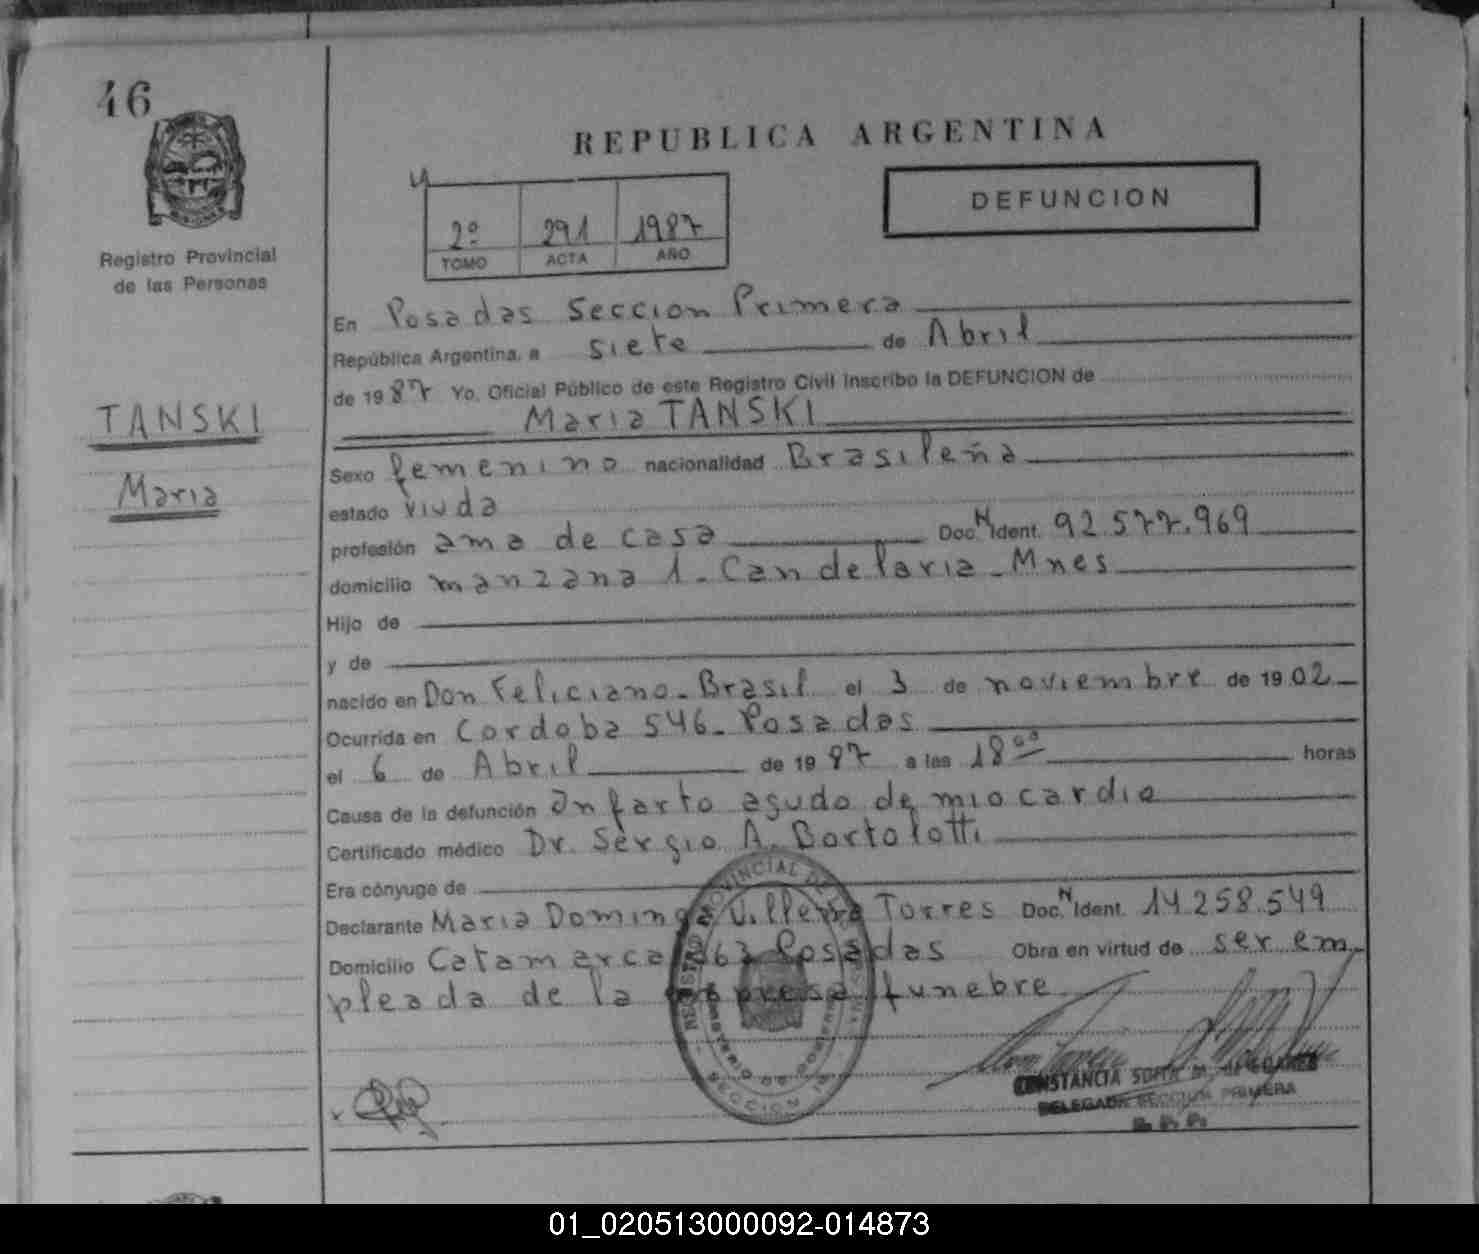 46
REPUBLICA ARGENTINA
DEFUNCION
2º 291 1987
TOMO ACTA AÑO
Registro Provincial
de las Personas
TANSKI
Maria
En Posadas Seccion Primera
República Argentina, a siete de Abril
de 1987 Yo, Oficial Público de este Registro Civil inscribo la DEFUNCION de
Maria TANSKI
Sexo femenino nacionalidad Brasileña
estado viuda
profesión ama de casa Doc. N Ident. 92.577.969
domicilio manzana 1 - Candelaria - Mnes
Hijo de
y de
nacido en Don Feliciano - Brasil el 3 de noviembre de 1902
Ocurrida en Cordoba 546 - Posadas
el 6 de Abril de 1987 a las 18 horas
Causa de la defunción Infarto agudo de miocardio
Certificado médico Dr. Sergio A. Bortolotti
Era cónyuge de
Declarante Maria Dominga Torres Doc. N Ident. 14.258.549
Domicilio Catamarca Posadas Obra en virtud de ser em
pleada de la empresa funebre
REGISTRO PROVINCIAL DE
SECCION
CONSTANCIA
DELEGADA SECCION PRIMERA
01_020513000092-014873